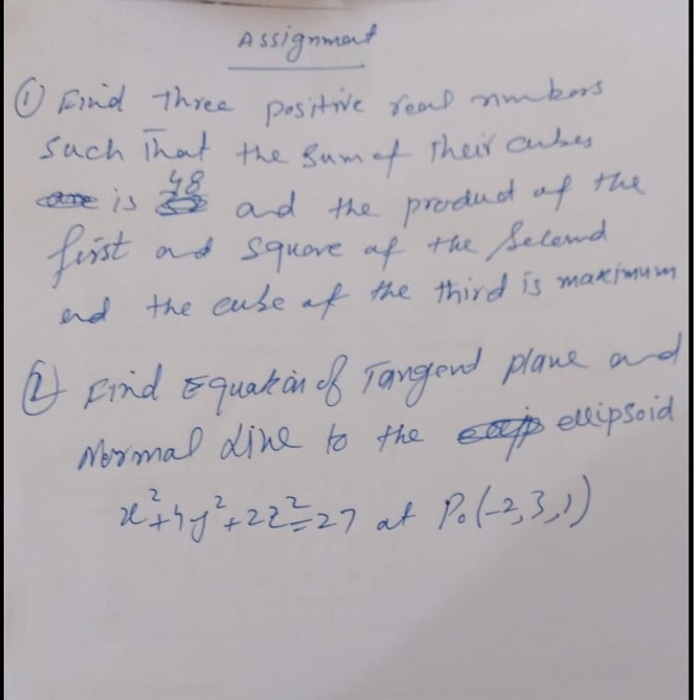 Assignment
① Find three positive real numbers
such That the sum of Their cubes
is 48 and the product of the
first and square of the Second
and the cube of the third is maximum
② Find Equation of Tangent plane and
Normal Line to the ellipsoid
x²+4y²+2z²=27 at P₀(-2,3,1)